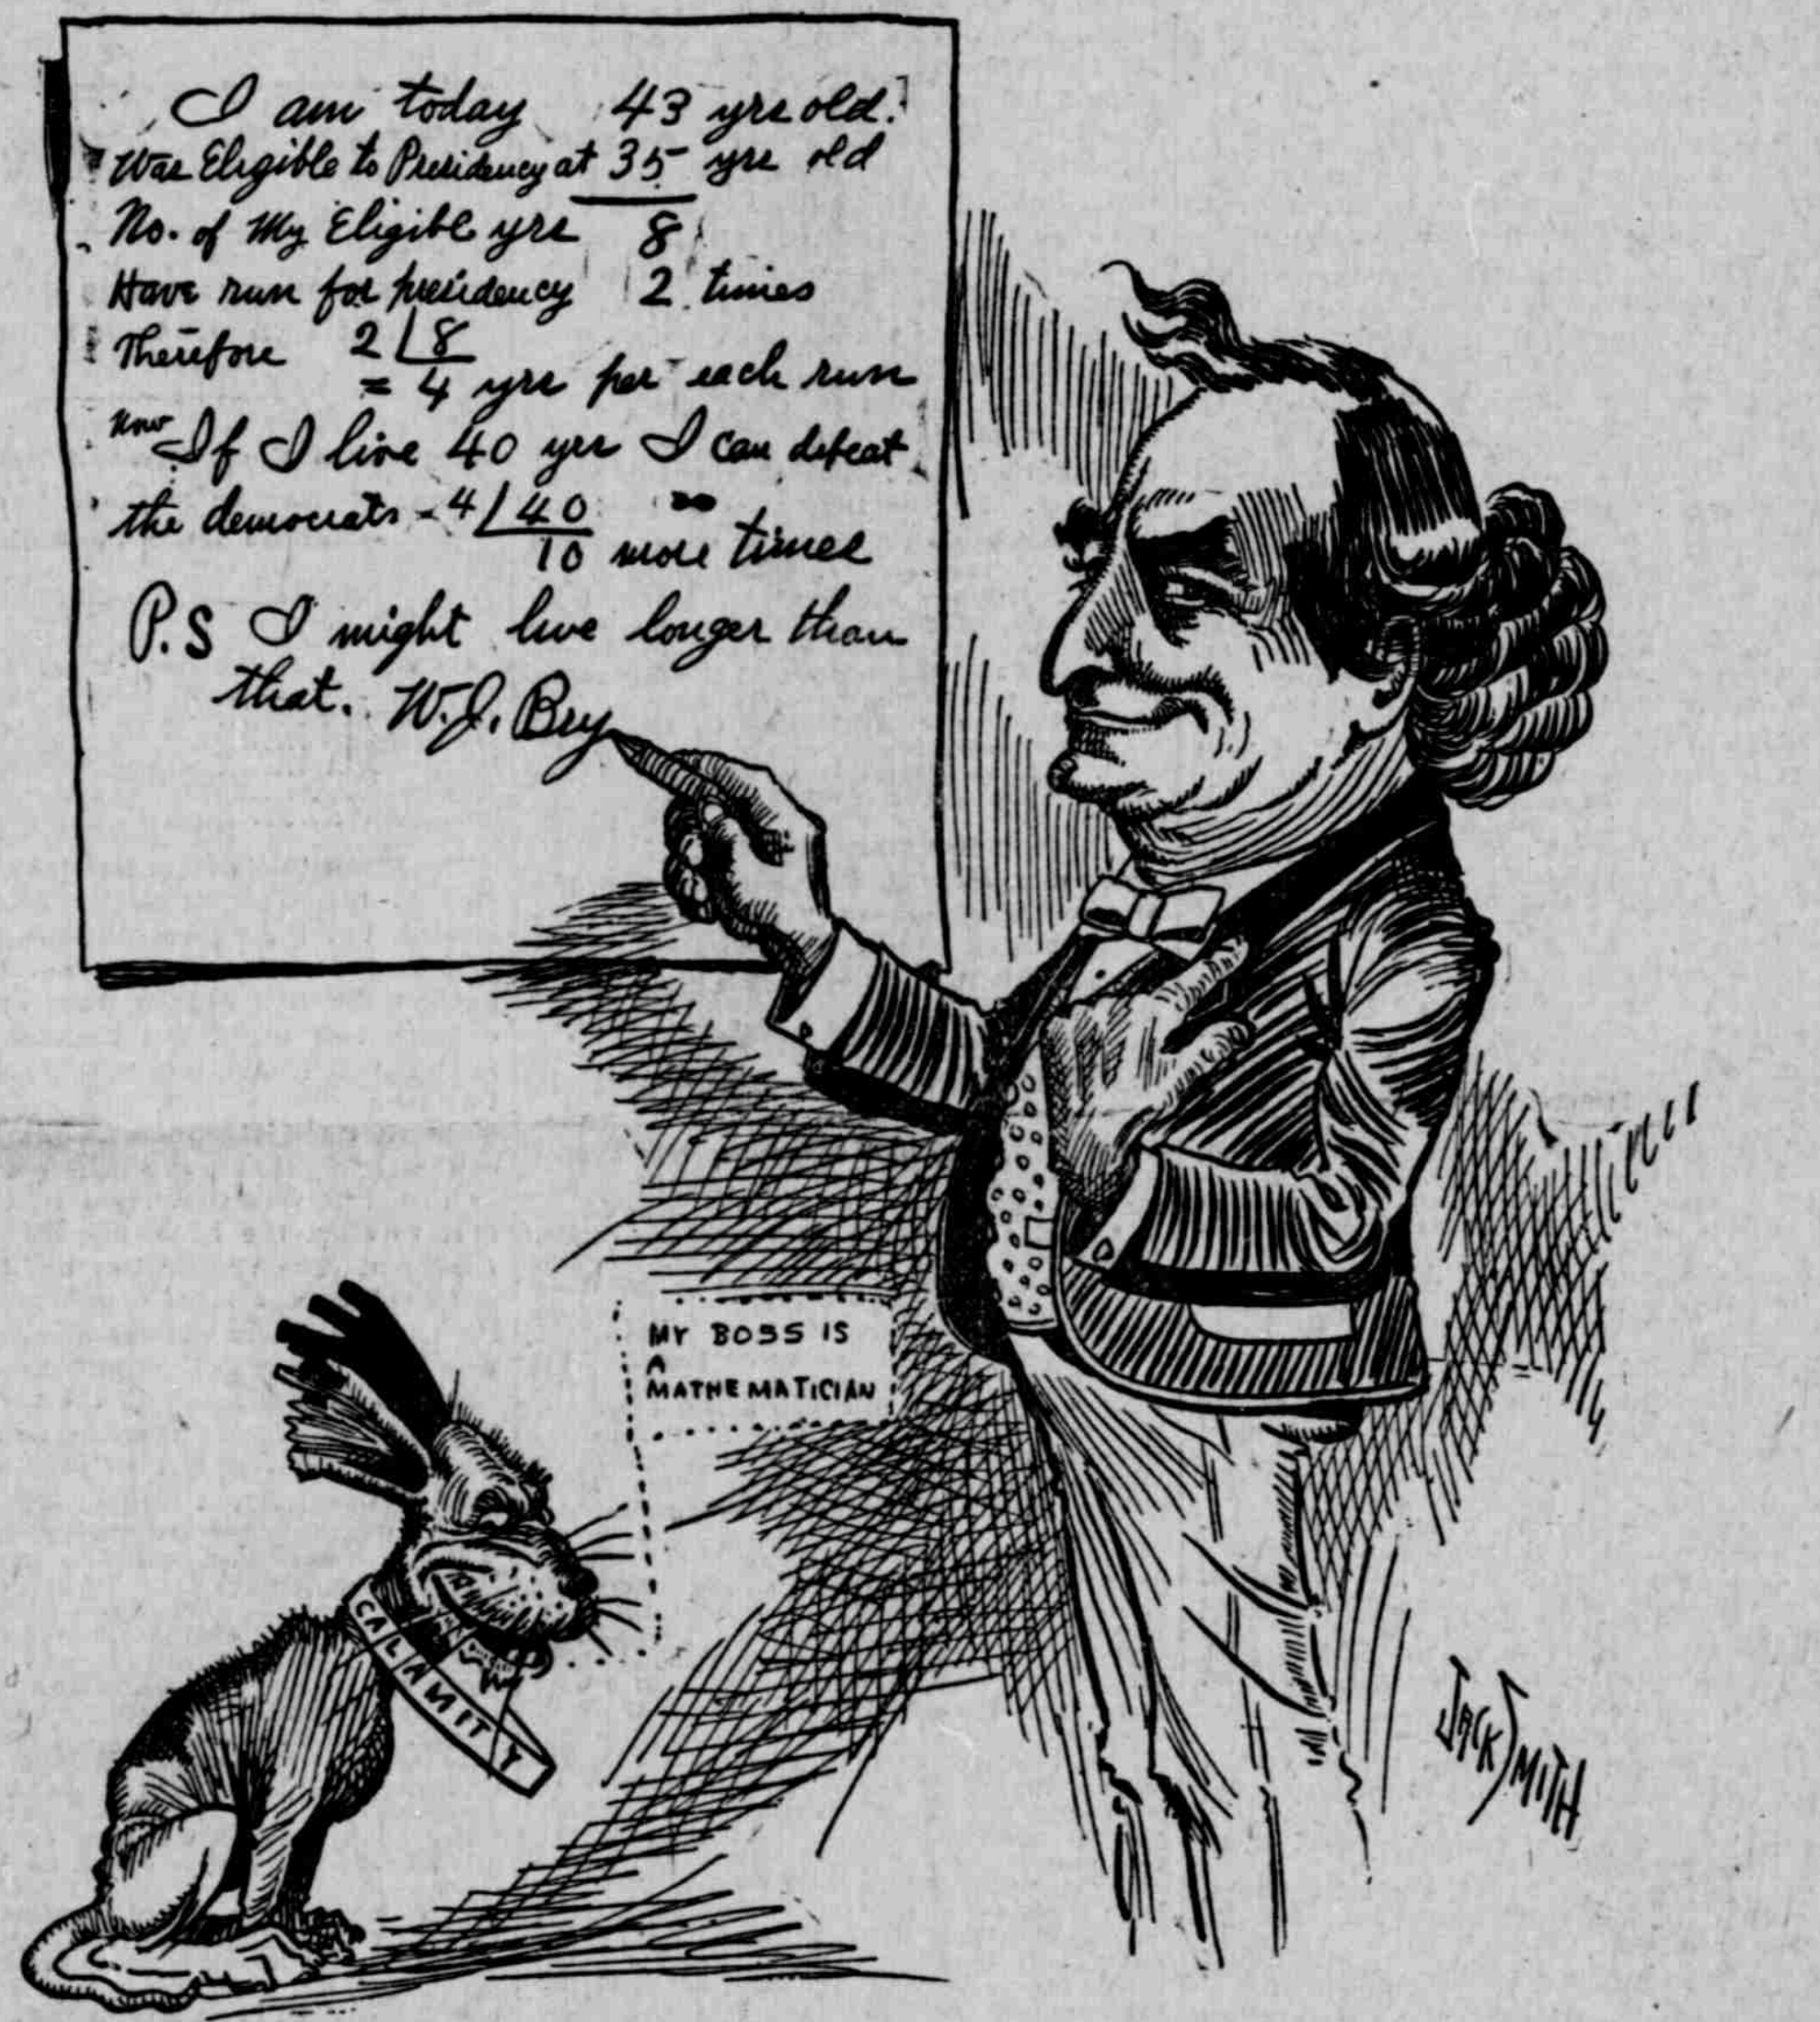 I am today 43 yrs old.
Was Eligible to Presidency at 35 yrs old
No. of My Eligible yrs 8
Have run for presidency 2 times
Therefore 2 | 8
= 4 yrs per each run
Now If I live 40 yrs I can defeat
the democrats - 4 / 40
10 more times
P.S I might live longer than
that. W.J. Bry
MY BOSS IS
A
MATHEMATICIAN
CALAMITY
JACK SMITH